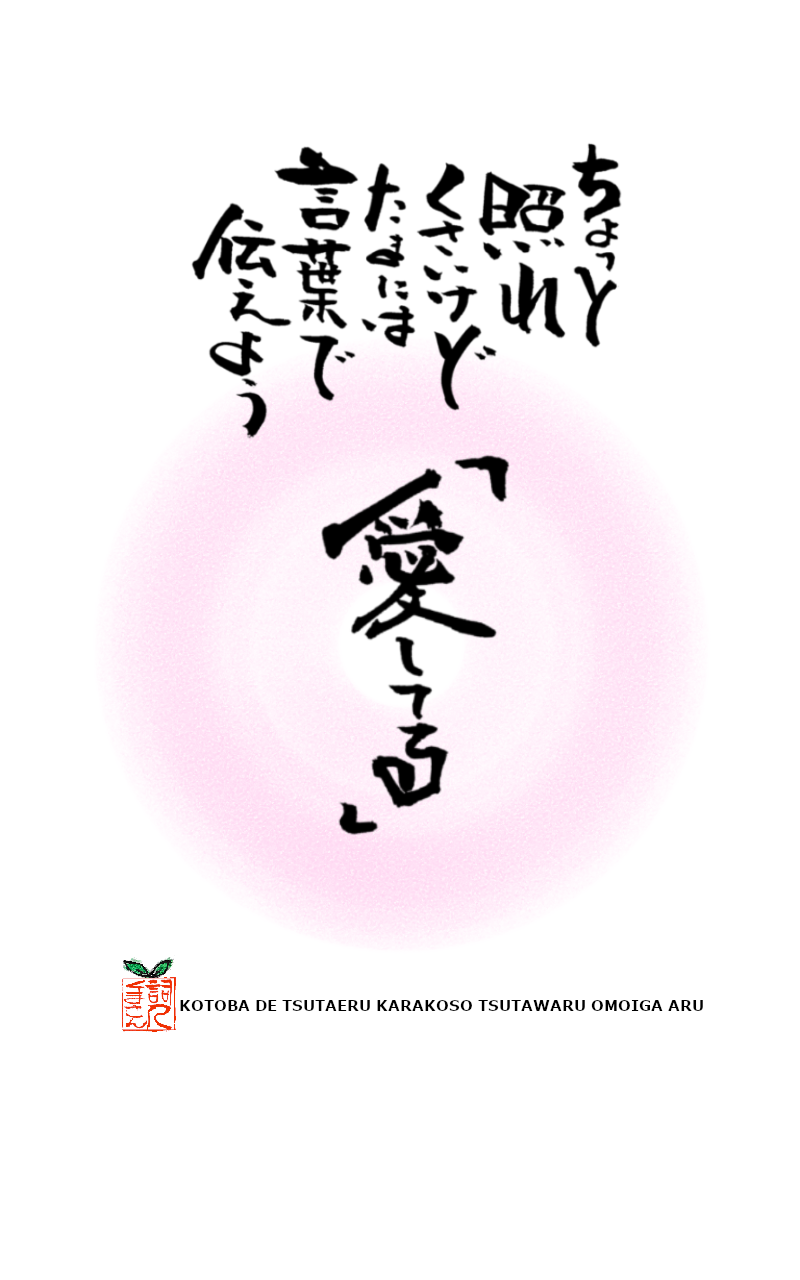 ちょっと
照れ
くさいけど
たまには
言葉で
伝えよう
「愛してる」
KOTOBA DE TSUTAERU KARAKOSO TSUTAWARU OMOIGA ARU